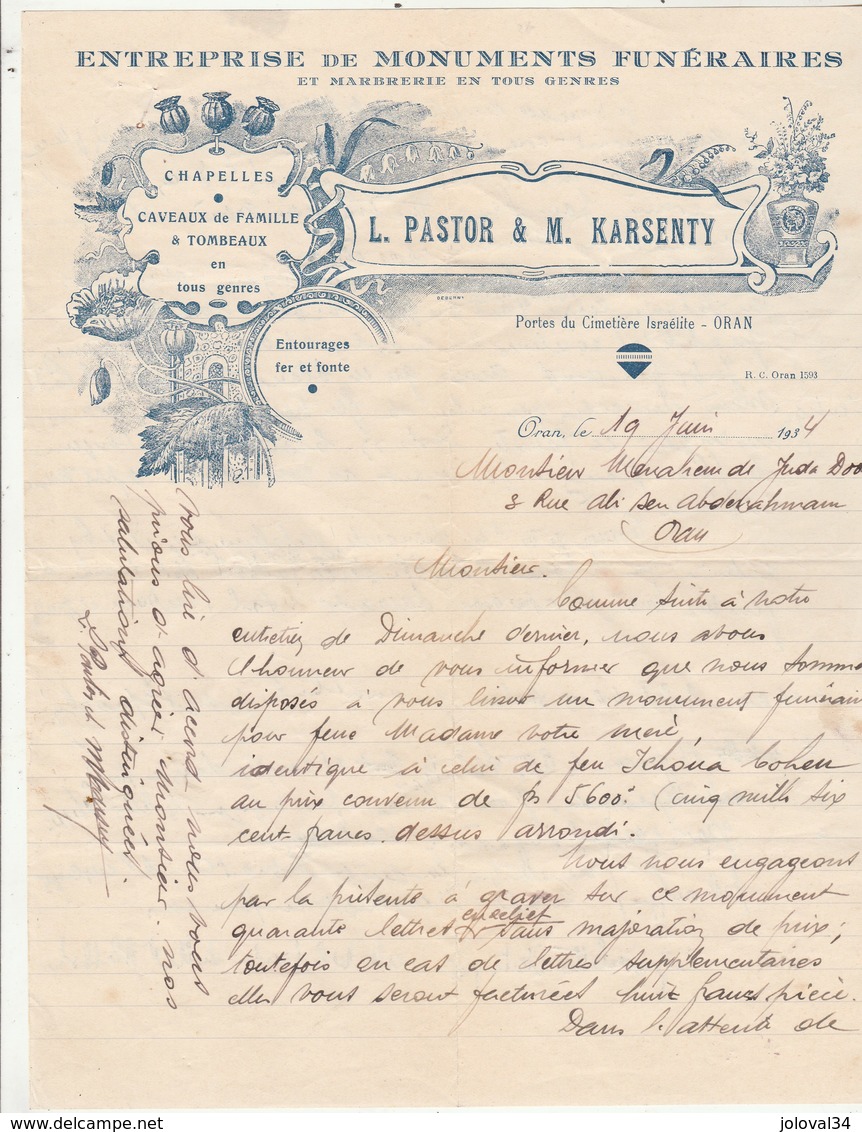 ENTREPRISE DE MONUMENTS FUNÉRAIRES
ET MARBRERIE EN TOUS GENRES
CHAPELLES
CAVEAUX de FAMILLE
& TOMBEAUX
en
tous genres
L. PASTOR & M. KARSENTY
Entourages
fer et fonte
Portes du Cimetière Israélite - ORAN
R. C. Oran 1593
Oran, le 19 Juin 1934
Monsieur Menahem de Juda
3 Rue Ali ben Abderrahmam
Oran
Monsieur.
Comme suite à notre
entretien de Dimanche dernier, nous avons
l'honneur de vous informer que nous somme
disposés à vous livrer un monument funérair
pour feue Madame votre mère,
identique à celui de feu Ichoua Cohen
au prix convenu de frs 5600. (cinq mille six
cent francs. dessus arrondi.
Nous nous engageons
par la présente à graver sur ce monument
quarante lettres en relief sans majoration de prix;
toutefois en cas de lettres supplémentaires
elles vous seront facturées huit francs pièce.
Dans l'attente de
vous lire d'accord nous vous
prions d'agréer Monsieur. nos
salutations distinguées.
www.delcampe.net
joloval34